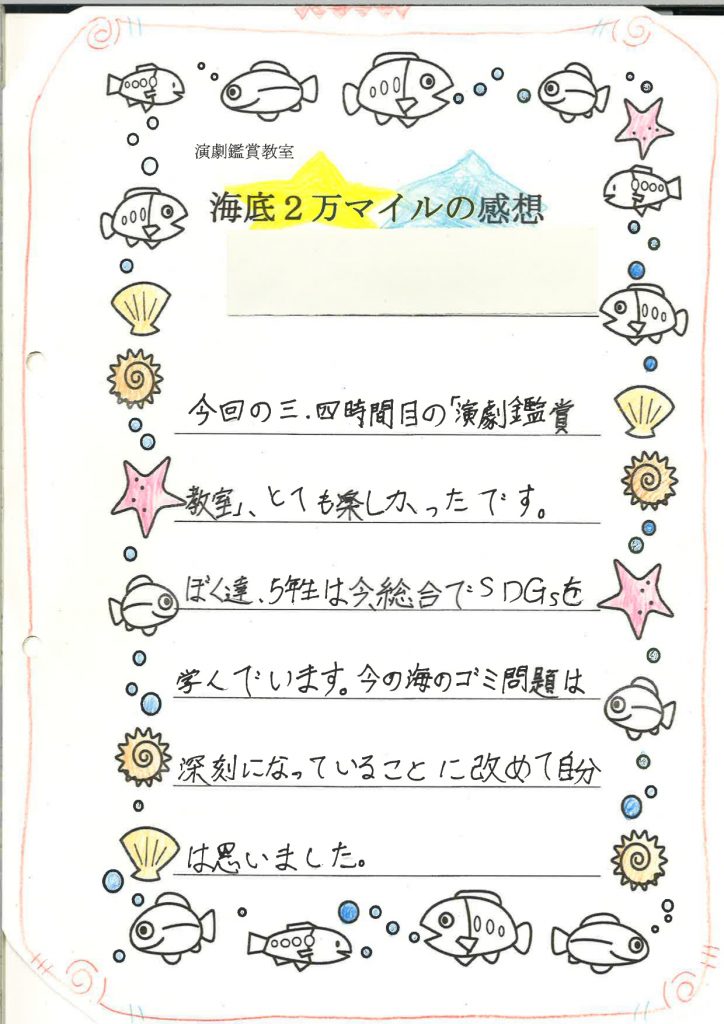 演劇鑑賞教室
海底２万マイルの感想
今回の三.四時間目の「演劇鑑賞
教室」、とても楽しかったです。
ぼく達、5年生は今、総合でSDGsを
学んでいます。今の海のゴミ問題は
深刻になっていることに改めて自分
は思いました。